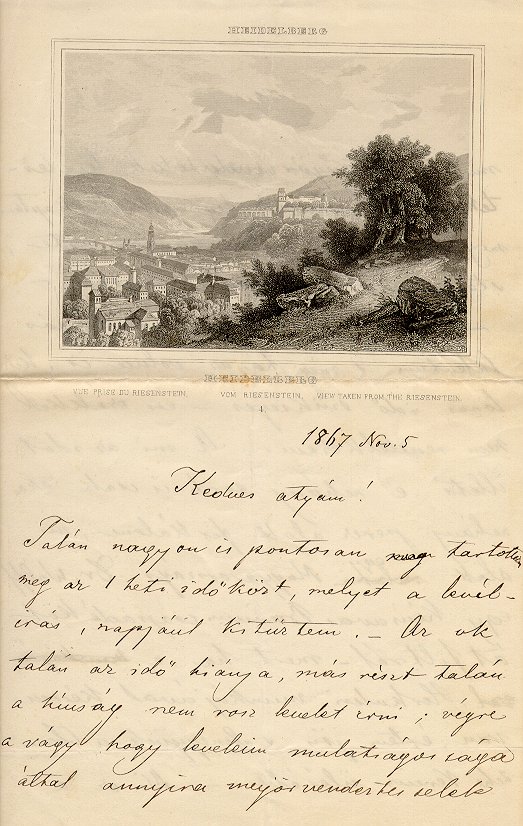 HEIDELBERG
HEIDELBERG
VUE PRISE DU RIESENSTEIN, VOM RIESENSTEIN, VIEW TAKEN FROM THE RIESENSTEIN.
1867 Nov. 5
Kedves atyám!
Talán nagyon is pontosan tartottam
meg az 1 heti időközt, melyet a levél-
irás, napjáúl kitűztem. – Az ok
talán az idő hiánya, más részt talán
a hiuság nem rosz levelet irni; végre
a vágy hogy leveleim mulatságos sága
által annyira